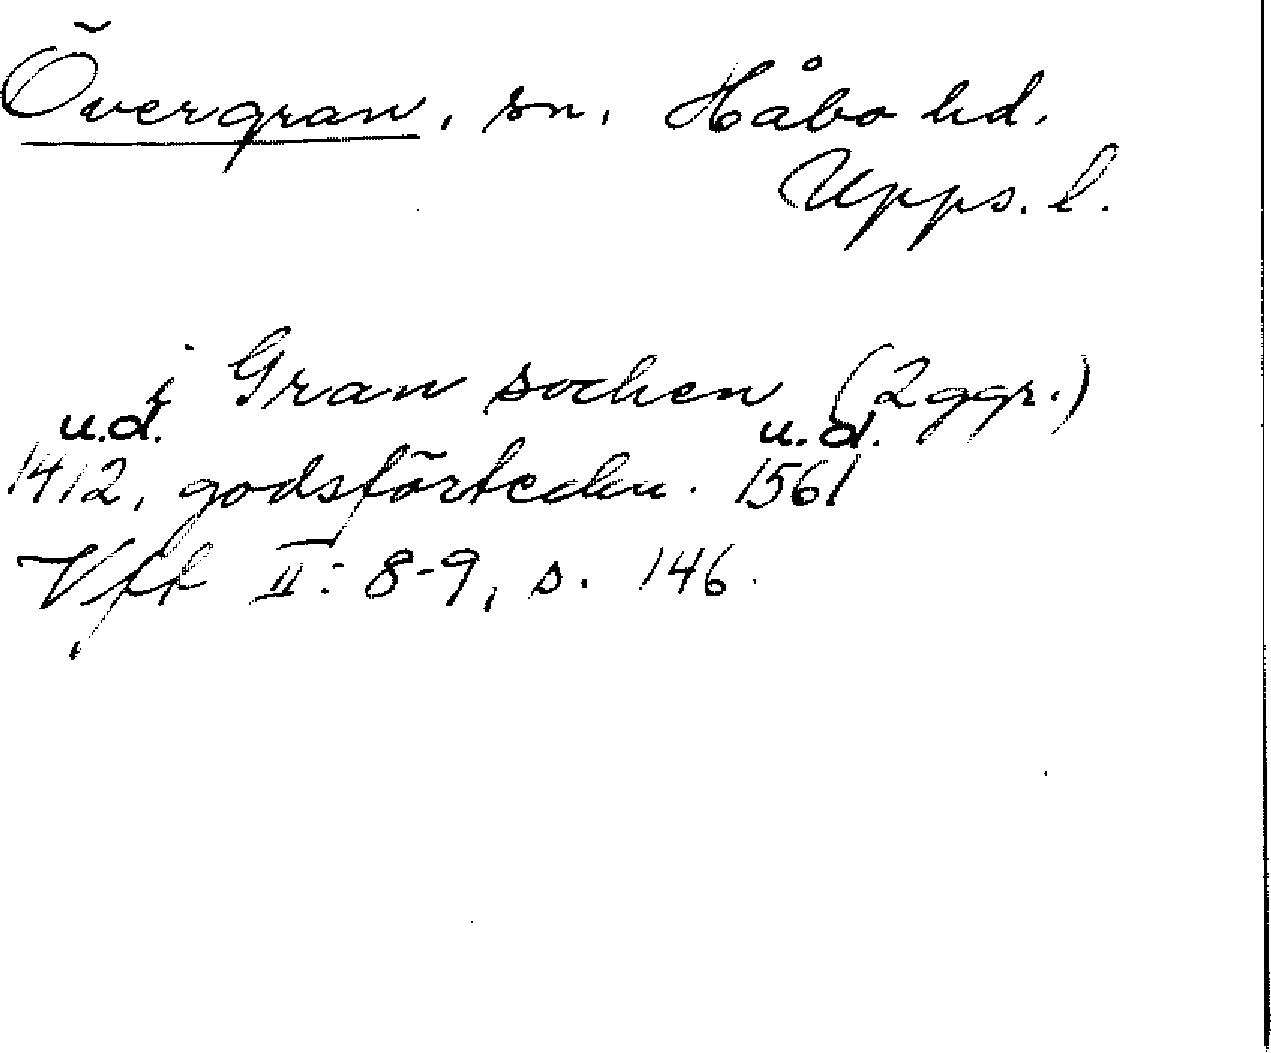 Övergran, sn. Håbo hd.
Upps. l.
i Gran sochen (2ggr.)
u.d. u.d.
1412, godsförteckn. 1561
Vff II: 8-9, s. 146.